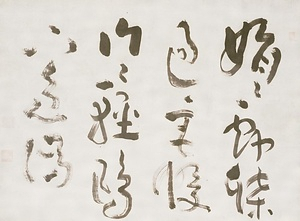 娟々戲蝶
過閒幔
片々輕鷗
下急湍